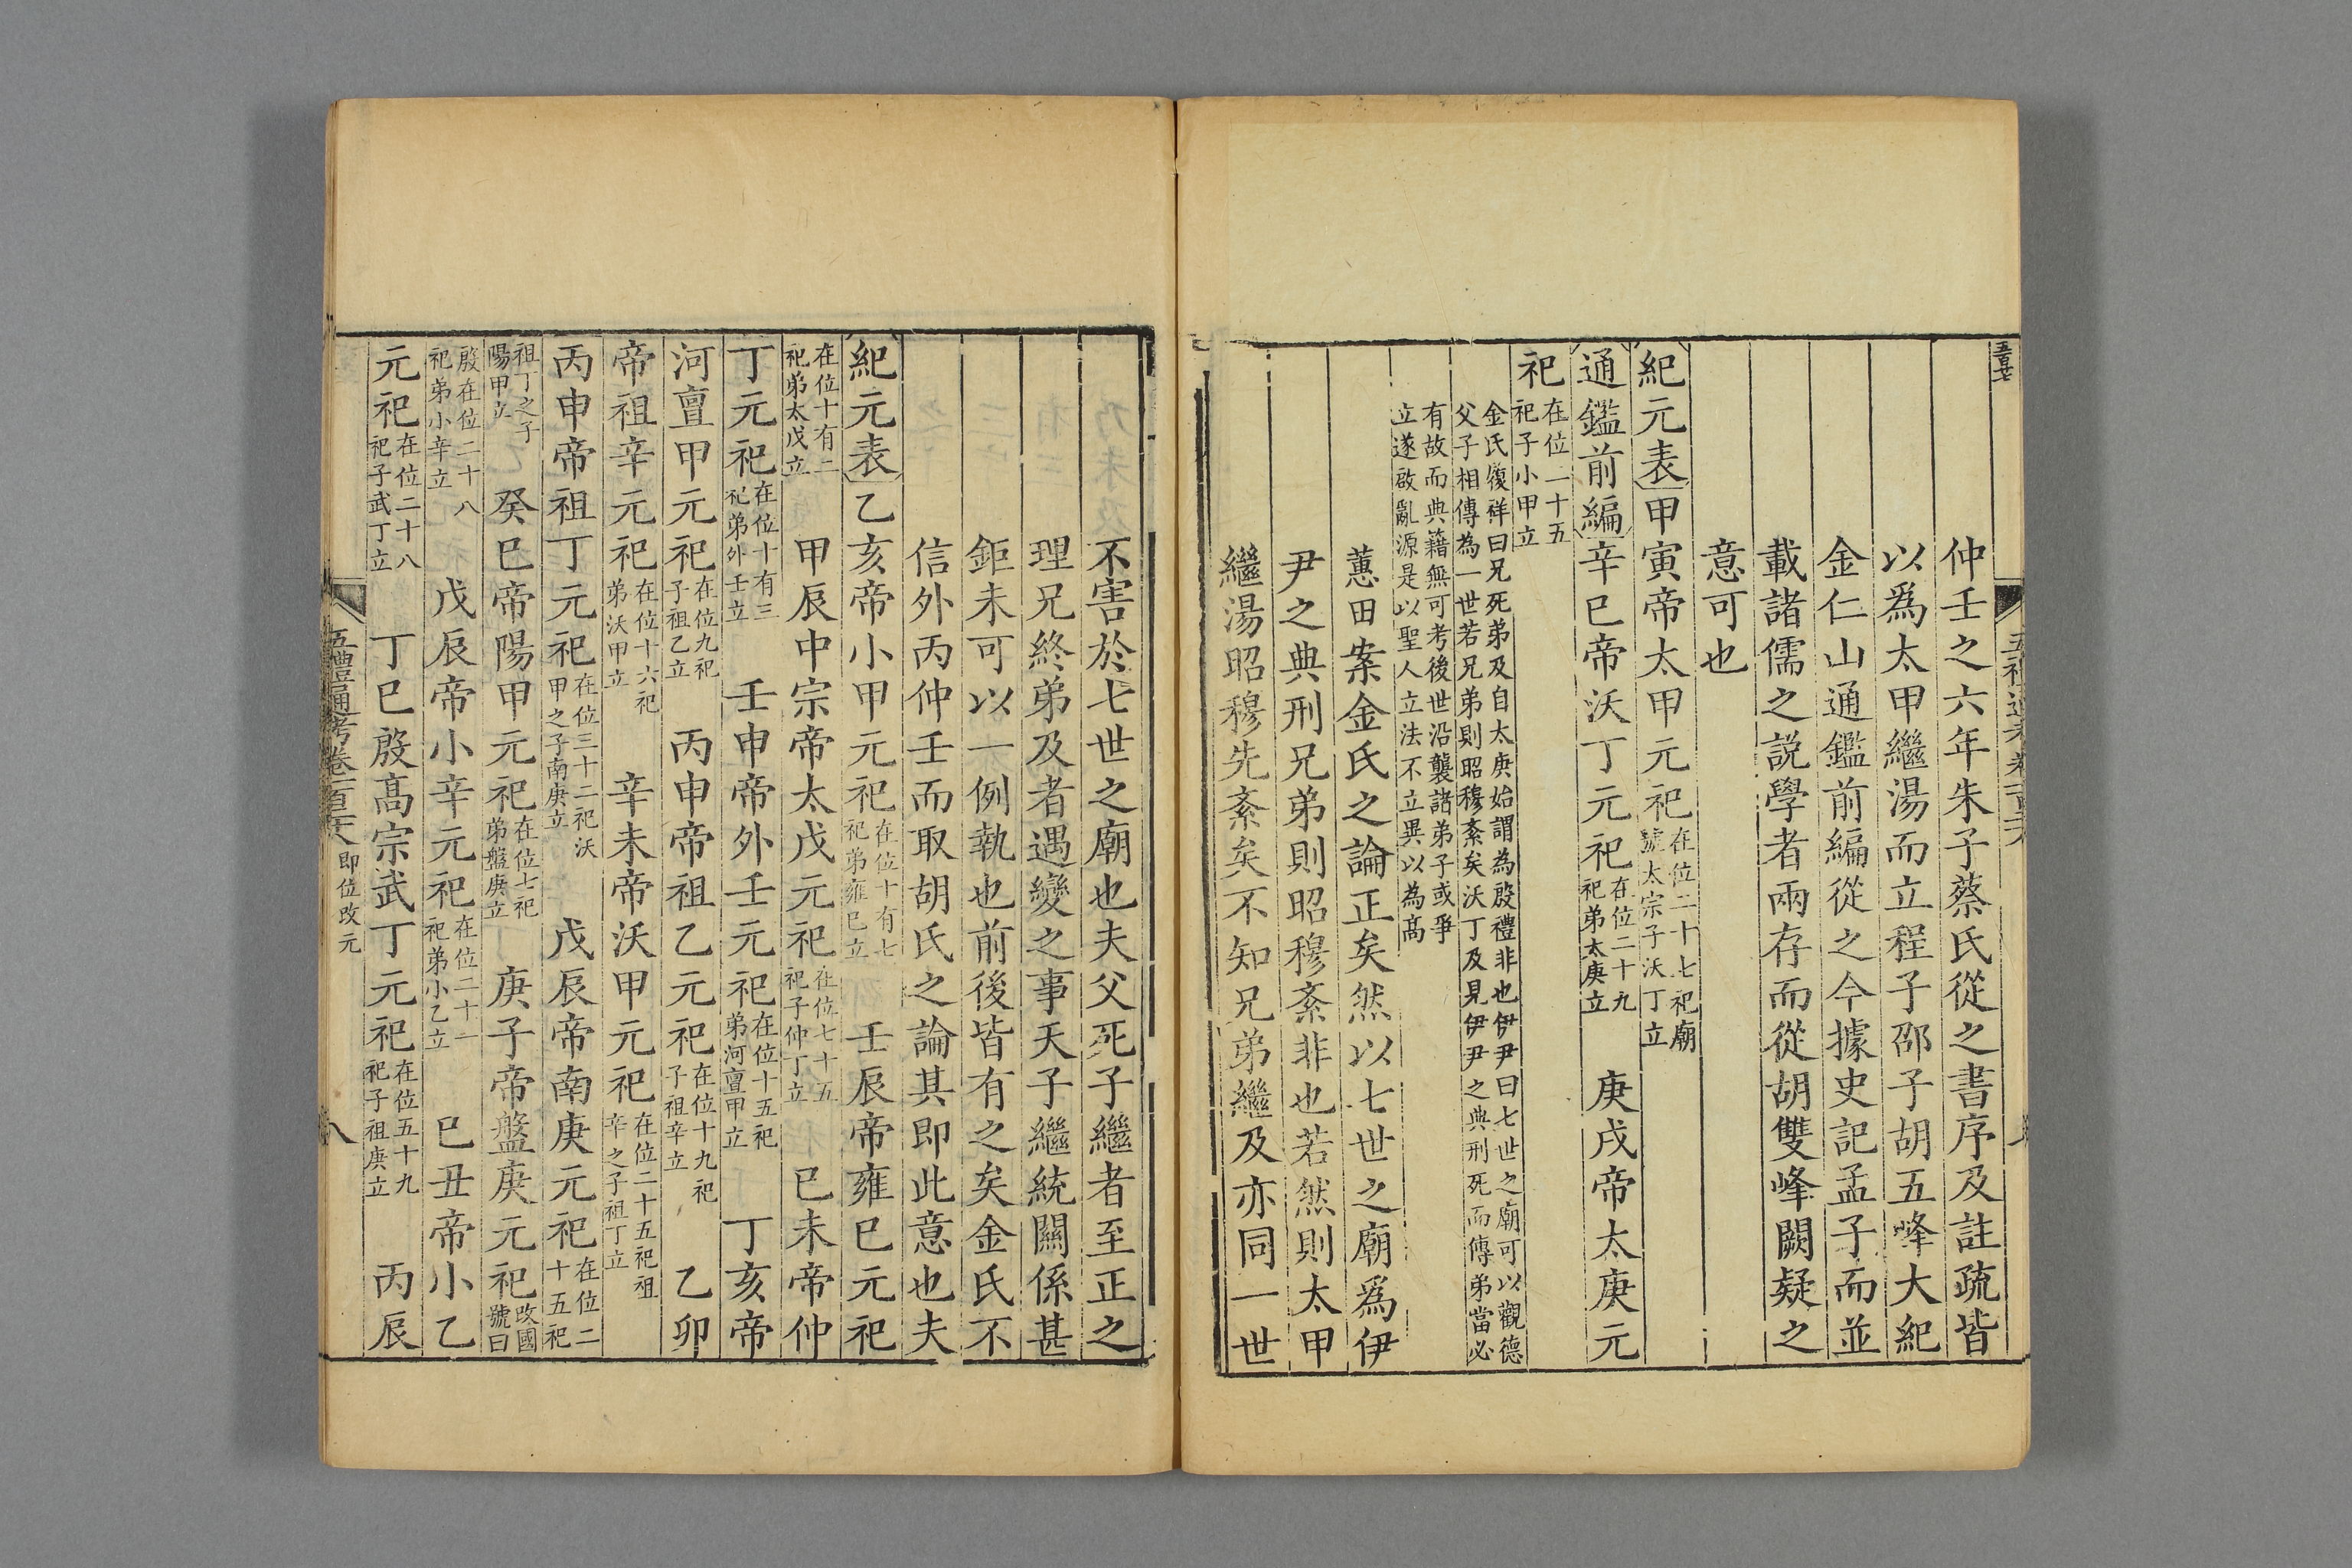 仲壬之六年朱子蔡氏從之書序及註疏皆
以爲太甲繼湯而立程子邵子胡五峰大紀
金仁山通鑑前編從之今據史記孟子而並
載諸儒之説學者兩存而從胡雙峰闕疑之
意可也
紀元表甲寅帝太甲元祀在位二十七祀廟號太宗子沃丁立
通鑑前編辛巳帝沃丁元祀在位二十九祀弟太庚立　庚戌帝太庚元
祀在位二十五祀子小甲立
金氏履祥曰兄死弟及自太庚始謂為殷禮非也伊尹曰七世之廟可以觀德
父子相傳為一世若兄弟則昭穆紊矣沃丁及見伊尹之典刑死而傳弟當必
有故而典籍無可考後世沿襲諸弟子或爭
立遂啟亂源是以聖人立法不立異以為高
蕙田案金氏之論正矣然以七世之廟爲伊
尹之典刑兄弟則昭穆紊非也若然則太甲
繼湯昭穆先紊矣不知兄弟繼及亦同一世
不害於七世之廟也夫父死子繼者至正之
理兄終弟及者遇變之事天子繼統關係甚
鉅未可以一例執也前後皆有之矣金氏不
信外丙仲壬而取胡氏之論其即此意也夫
紀元表乙亥帝小甲元祀在位十有七祀弟雍巳立　壬辰帝雍巳元祀
在位十有二祀弟太戊立　甲辰中宗帝太戊元祀在位七十五祀子仲丁立　巳未帝仲
丁元祀在位十有三祀弟外壬立　壬申帝外壬元祀在位十五祀弟河亶甲立　丁亥帝
河亶甲元祀在位九祀子祖乙立　丙申帝祖乙元祀在位十九祀子祖辛立　乙卯
帝祖辛元祀在位十六祀弟沃甲立　辛未帝沃甲元祀在位二十五祀祖辛之子祖丁立
丙申帝祖丁元祀在位三十二祀沃甲之子南庚立　戊辰帝南庚元祀在位二十五祀
祖丁之子陽甲立　癸巳帝陽甲元祀在位七祀弟盤庚立　庚子帝盤庚元祀改國號曰
殷在位二十八祀弟小辛立　戊辰帝小辛元祀在位二十一祀弟小乙立　巳丑帝小乙
元祀在位二十八祀子武丁立　丁巳殷高宗武丁元祀在位五十九祀子祖庚立　丙辰
五禮通考卷一百二十八　即位改元　八